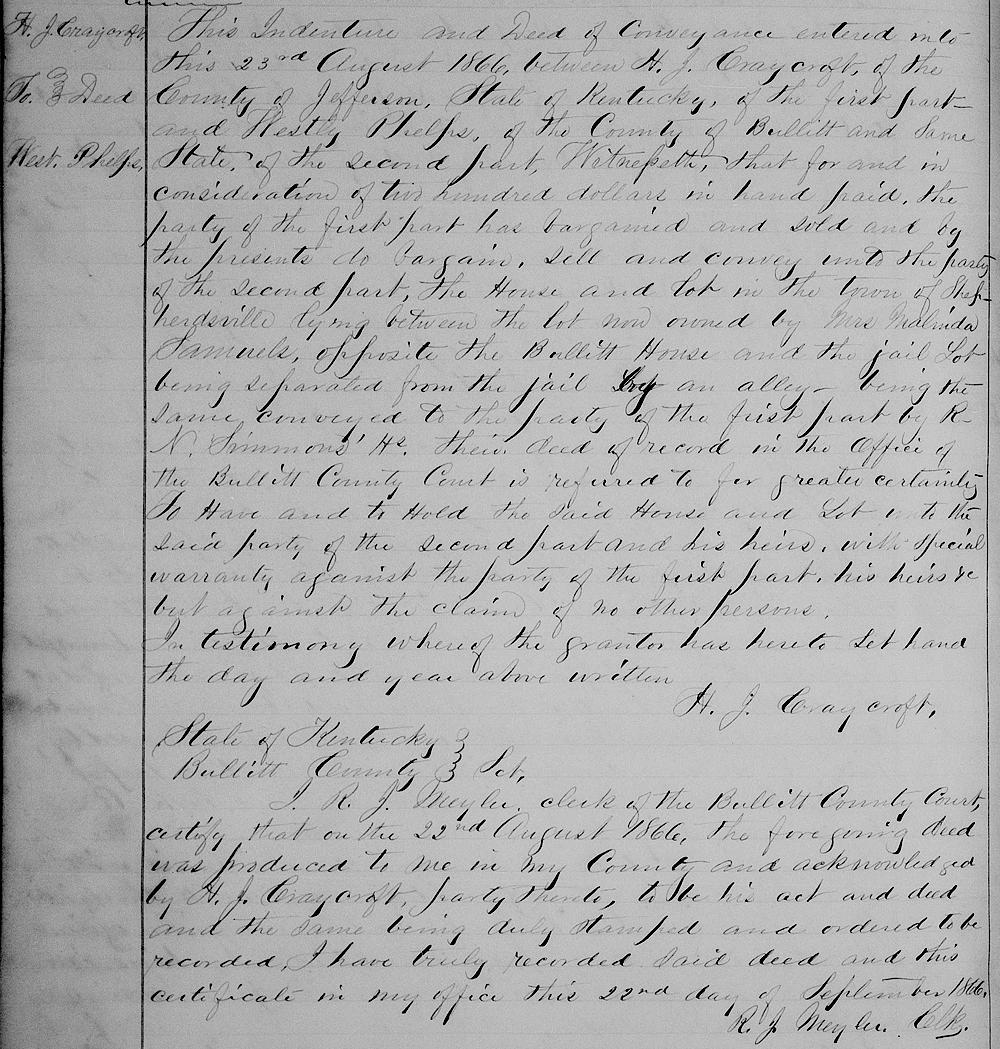 H. J. Craycroft,
To. } Deed
West. Phelps,
This Indenture and Deed of Conveyance entered into
this 23rd August 1866, between H. J. Craycroft, of the
County of Jefferson, State of Kentucky, of the first part
and Westly Phelps, of the County of Bullitt and Same
State, of the second part, Witnesseth, that for and in
consideration of two hundred dollars in hand paid, the
party of the first part has bargained and sold and by
the presents do bargain, sell and convey unto the party
of the second part, the House and lot in the town of Shep-
herdsville lying between the lot now owned by Mrs Malinda
Samuels, opposite the Bullitt House and the jail Lot
being separated from the jail by an alley - being the
same conveyed to the party of the first part by R-
N. Simmons' Hs. Their deed of record in the Office of
the Bullitt County Court is referred to for greater certainty
To Have and to Hold the said House and Lot unto the
said party of the second part and his heirs, with special
warranty against the party of the first part, his heirs &c
but against the claim of no other persons.
In testimony whereof the grantor has hereto Set hand
the day and year above written
H. J. Craycroft,
State of Kentucky }
Bullitt County } Sct,
I. R. J. Meyler, clerk of the Bullitt County Court,
certify that on the 22nd August 1866, the foregoing deed
was produced to me in my County and acknowledged
by H. J. Craycroft, party thereto, to be his act and deed
and the same being duly stamped and ordered to be
recorded, I have truly recorded said deed and this
certificate in my office this 22nd day of September 1866.
R. J. Meyler. Clk.